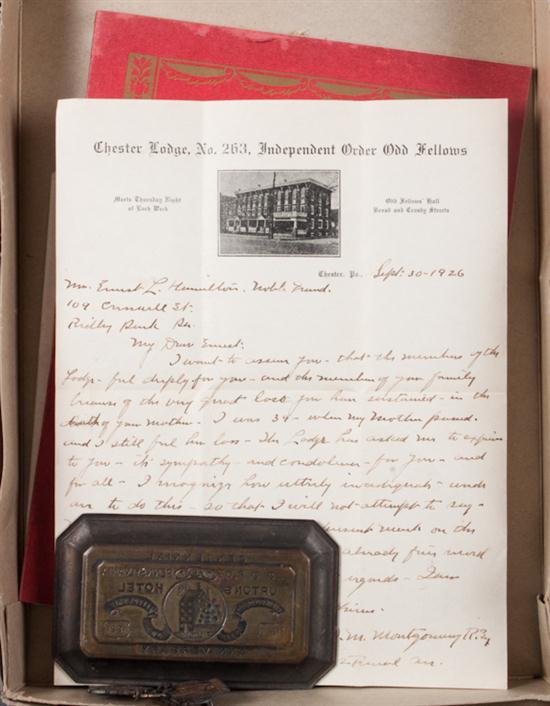 Chester Lodge, No. 263, Independent Order Odd Fellows
Meets Thursday Night
of Each Week
Odd Fellows' Hall
Broad and Crosby Streets
Chester, Pa., Sept. 30-1926
Mr. Ernest L. Hamilton. Noble Grand.
109 St.
Ridley Park Pa.
My Dear Ernest:
I want to assure you - that the members of the
Lodge - feel deeply for you - and the members of your family
because of the very great loss you have sustained - in the
death of your mother. I was 34 - when my Mother passed.
and I still feel her loss - The Lodge has asked me to express
to you - it's sympathy - and condolence - for you - and
for all - I recognize how utterly words
are to do this - so that I will not attempt to say -
on this
already word
regards -
M. Montgomery P. G.
HOTEL